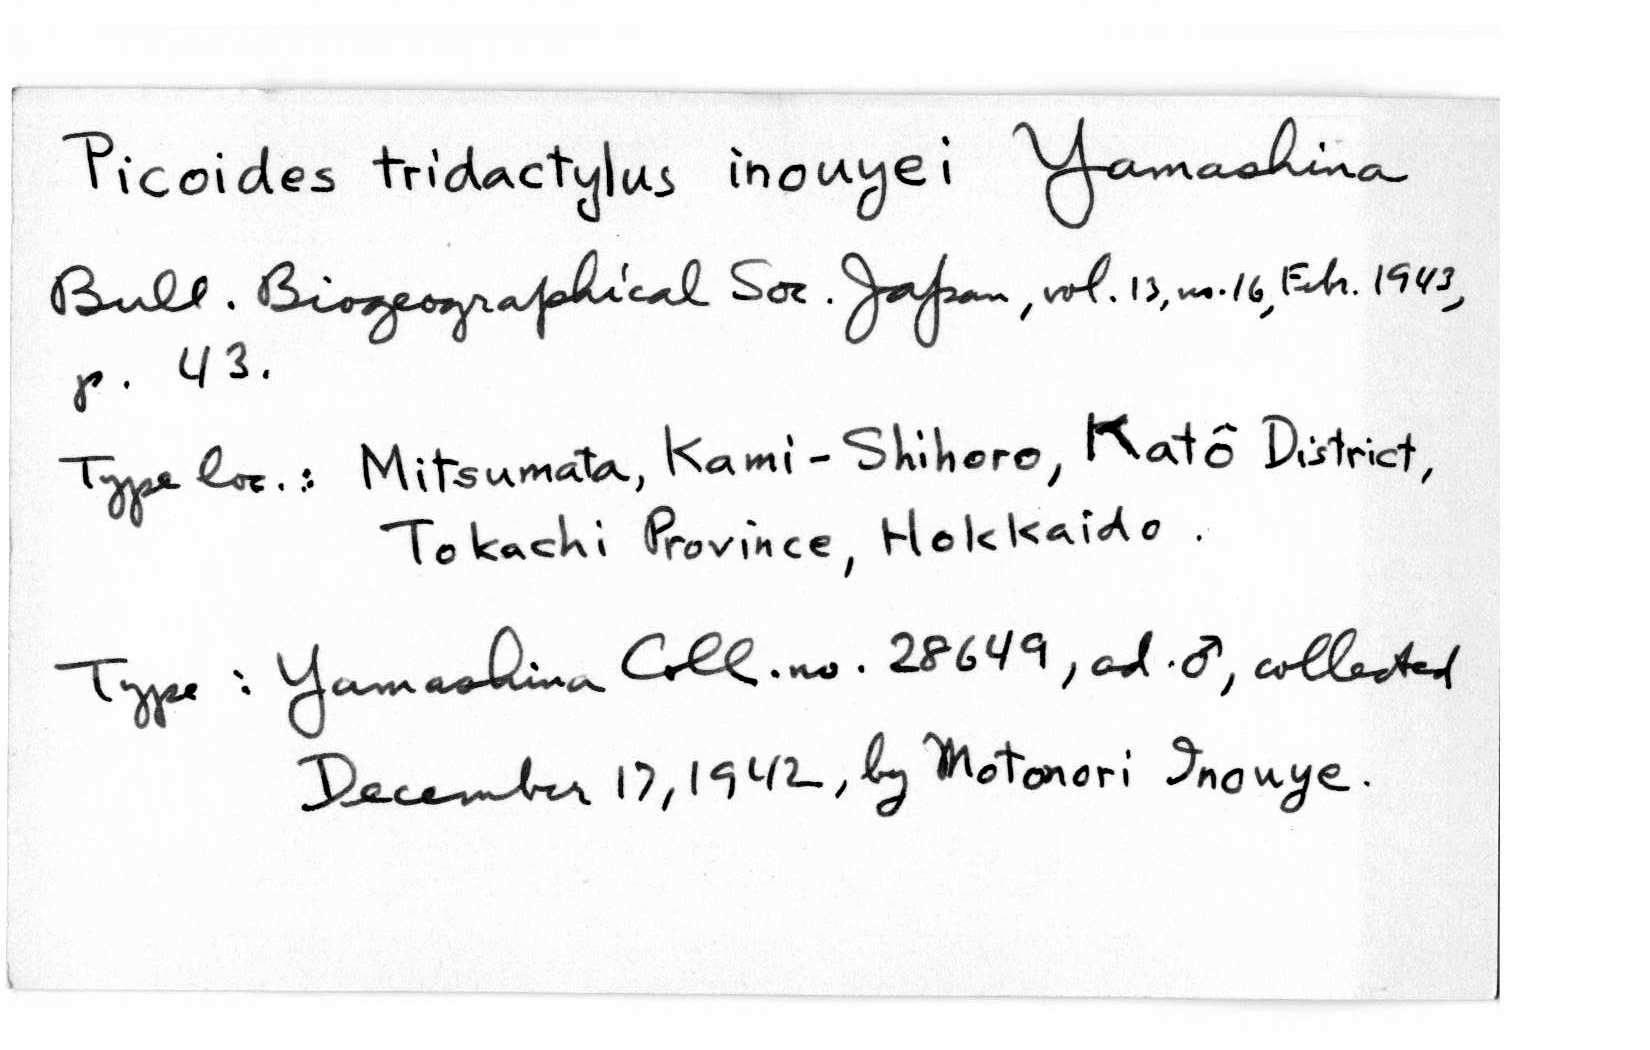 Picoides tridactylus inouyei Yamashina
Bull. Biogeographical Soc. Japan, vol. 13, no. 16, Feb. 1943,
p. 43.
Type loc.: Mitsumata, Kami-Shihoro, Katô District,
Tokachi Province, Hokkaido.
Type: Yamashina Coll. no. 28649, ad. ♂, collected
December 17, 1942, by Motonori Inouye.